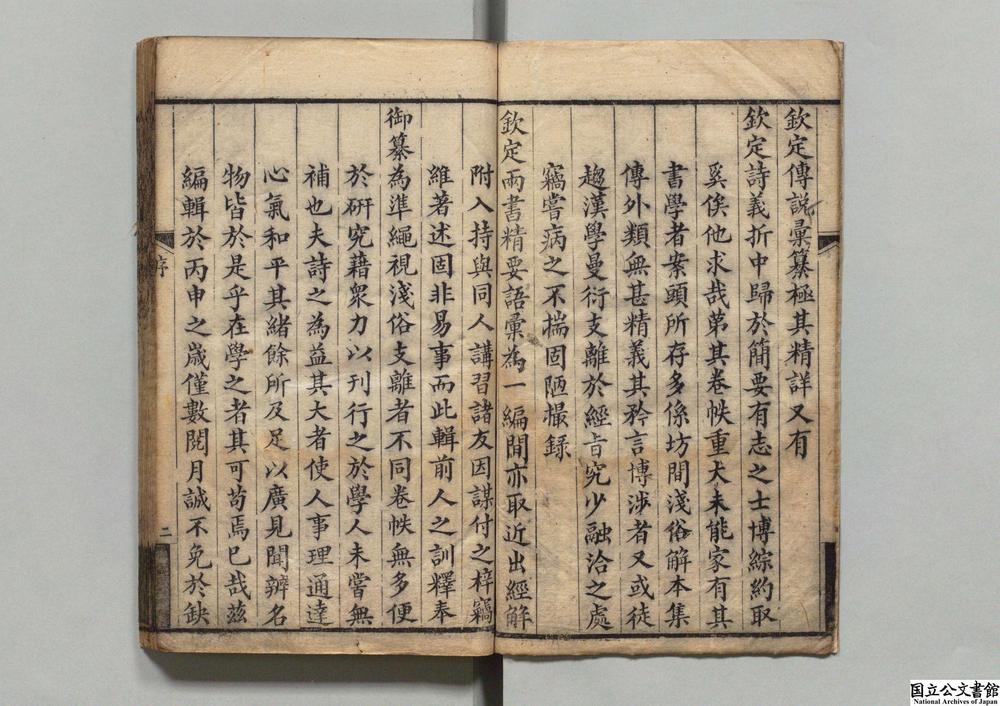 欽定傳説彙纂極其精詳又有
欽定詩義折中歸於簡要有志之士博綜約取
奚俟他求哉第其卷帙重大未能家有其
書學者案頭所存多係坊間淺俗解本集
傳外類無甚精義其矜言博涉者又或徒
趨漢學曼衍支離於經旨究少融洽之處
竊嘗病之不揣固陋撮録
欽定兩書精要語彙為一編間亦取近出經解
附入持與同人講習諸友因謀付之梓竊
維著述固非易事而此輯前人之訓釋奉
御纂為準繩視淺俗支離者不同卷帙無多便
於研究藉衆力以刊行之於學人未嘗無
補也夫詩之為益其大者使人事理通達
心氣和平其緒餘所及足以廣見聞辨名
物皆於是乎在學之者其可苟焉已哉茲
編輯於丙申之歲僅數閲月誠不免於缺
序
二
国立公文書館
National Archives of Japan